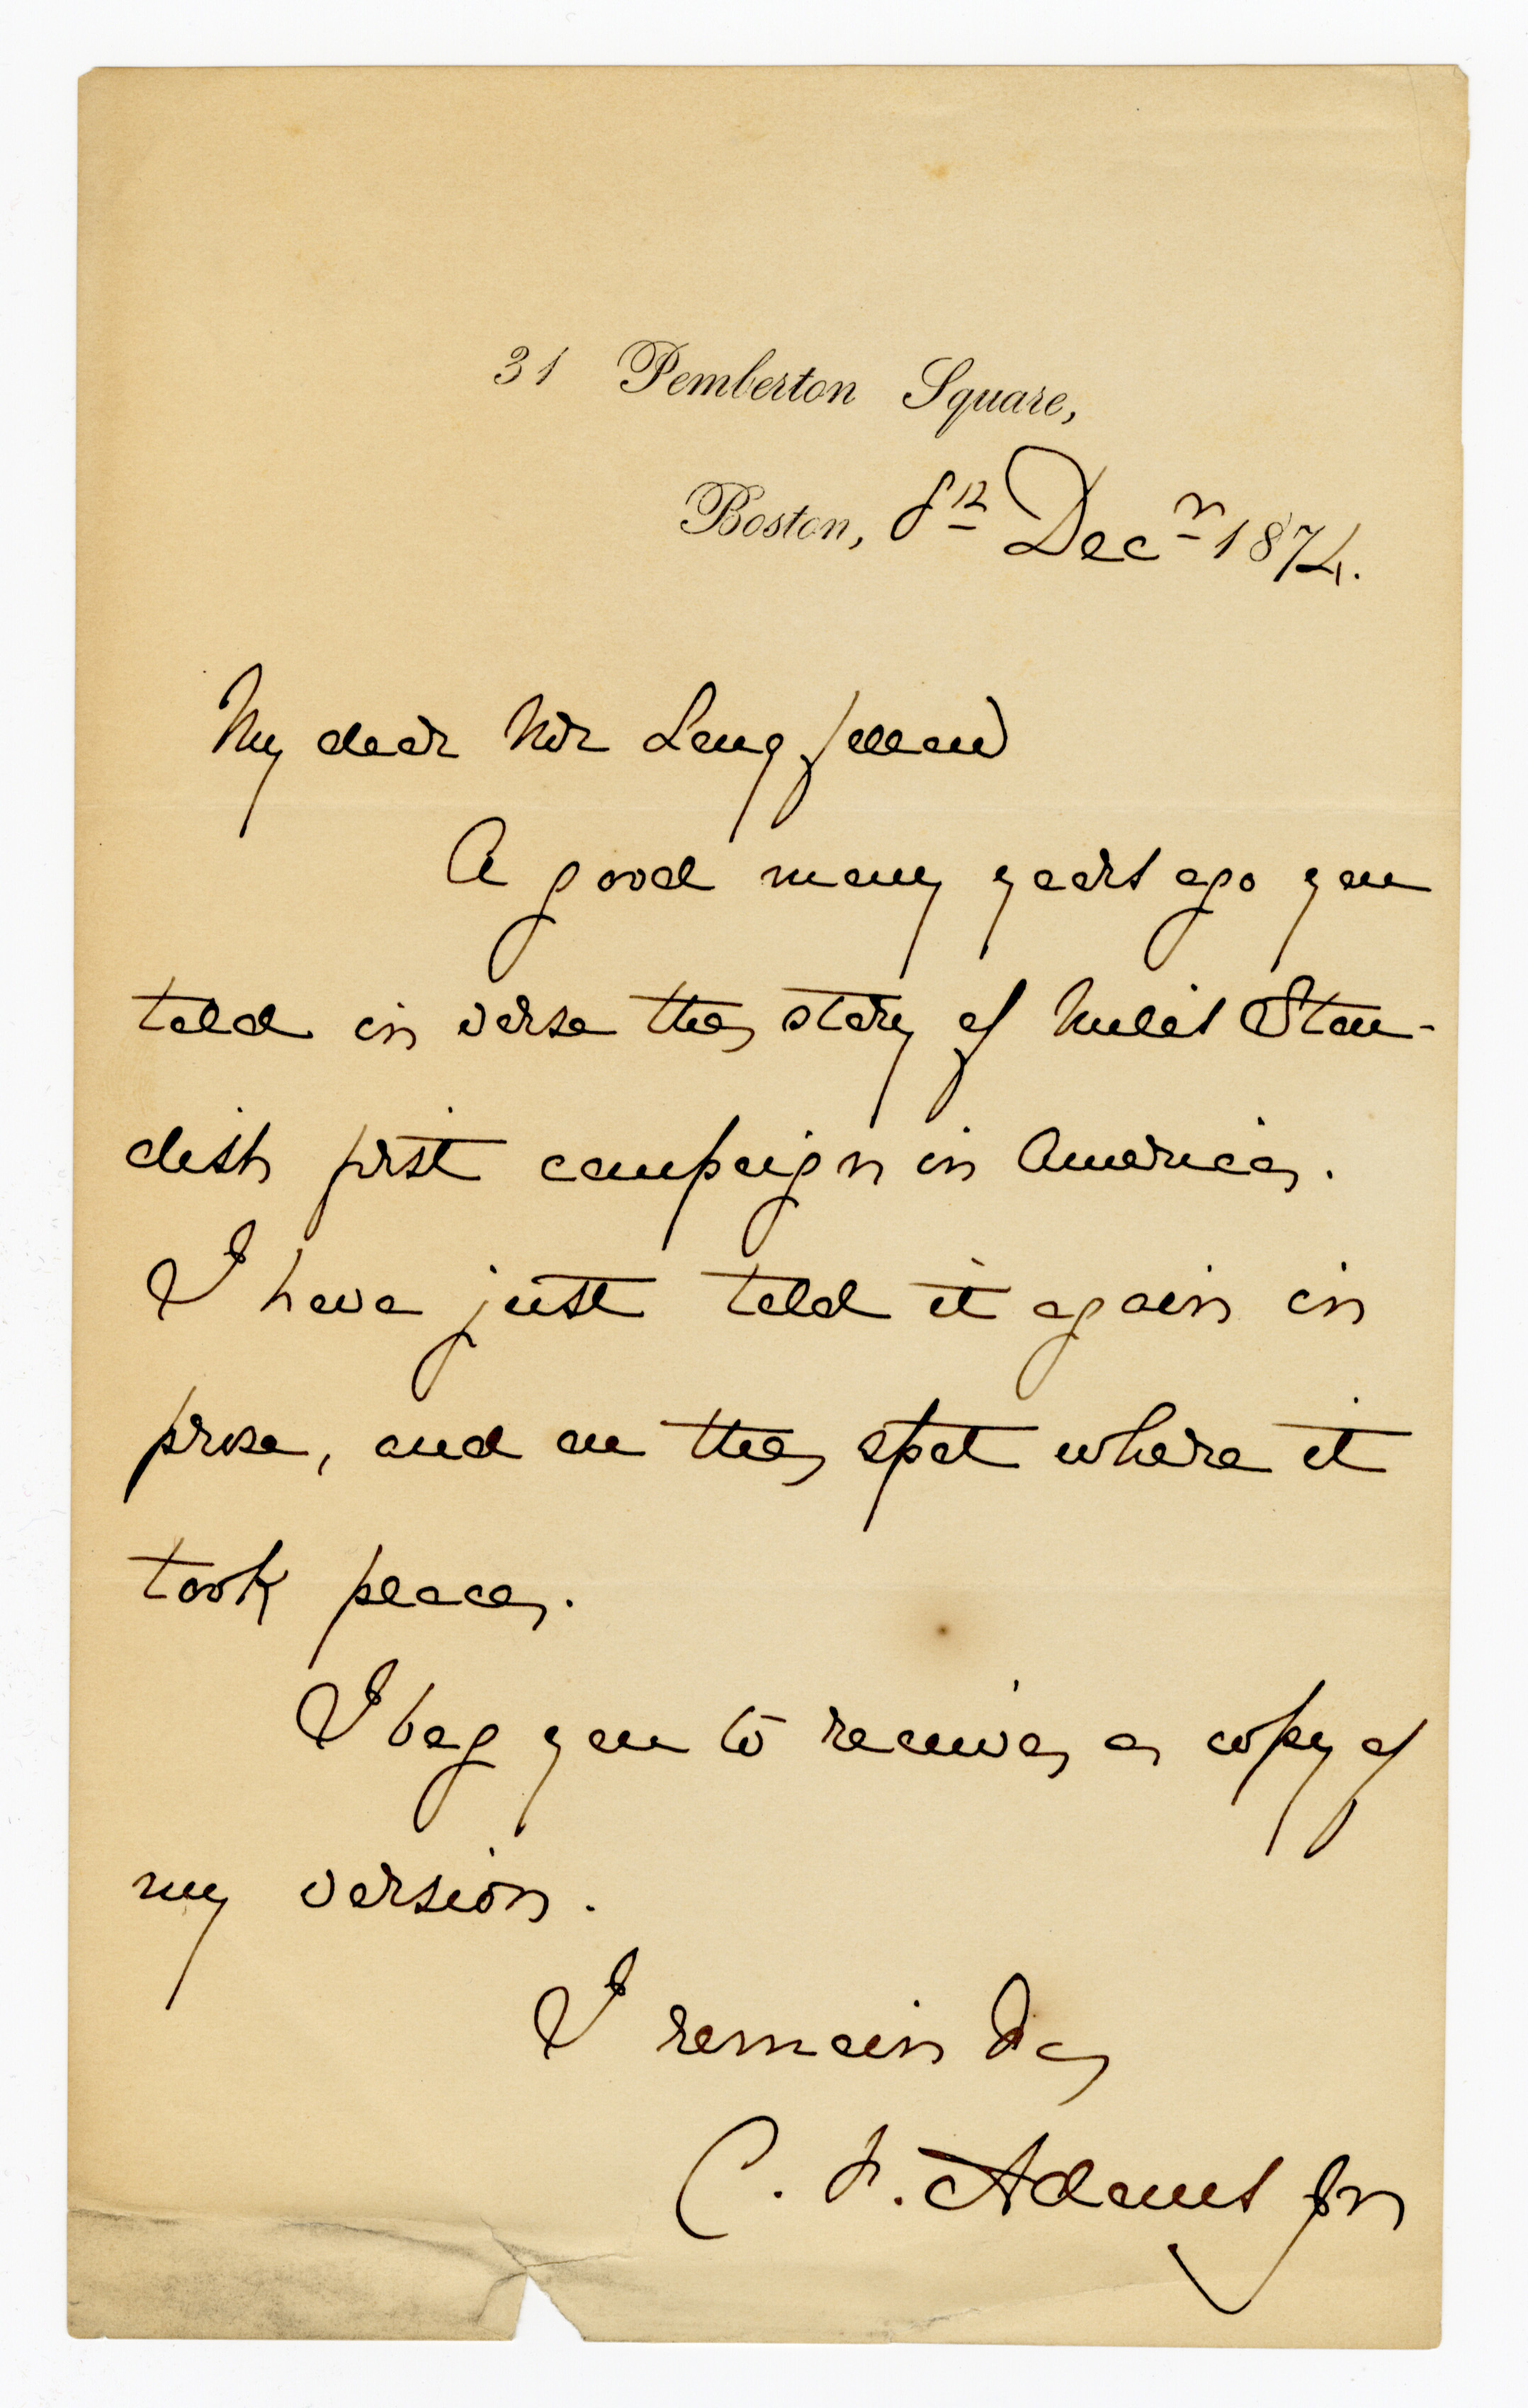 31 Pemberton Square,
Boston, 8th Decr 1874.
My dear Mr Longfellow
A good many years ago you
told in verse the story of Miles Stan-
dish first campaign in America.
I have just told it again in
prose, and on the spot where it
took place.
I beg you to receive a copy of
my version.
I remain &c
C. F. Adams Jr